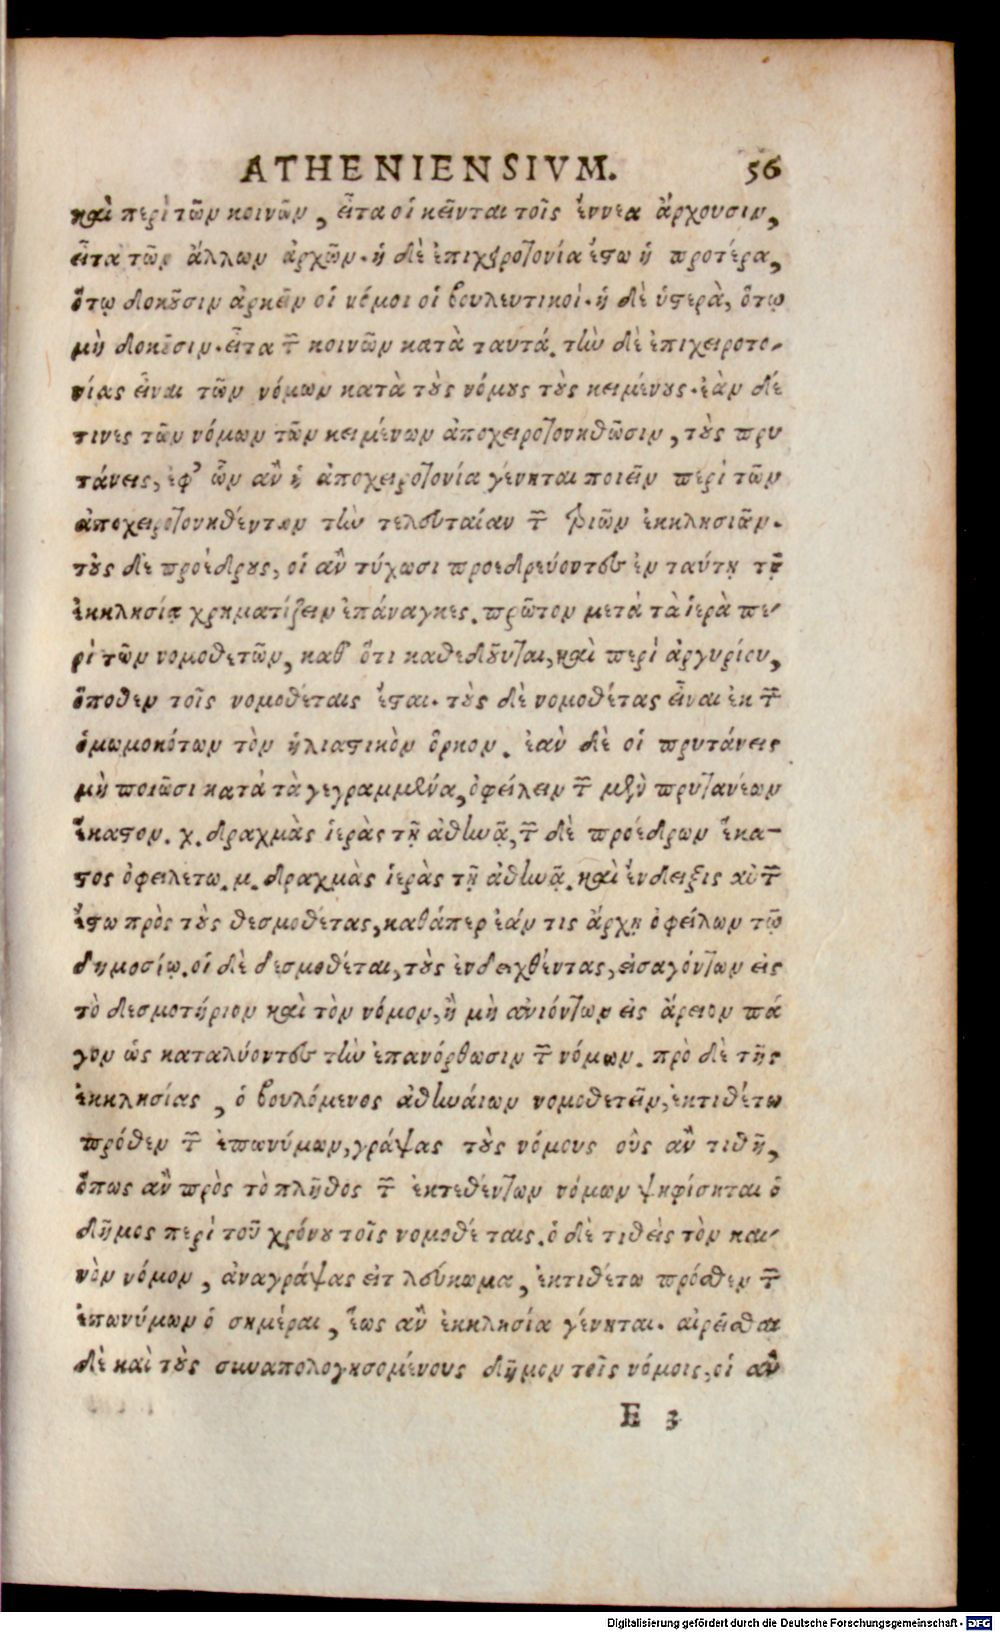 ATHENIENSIVM. 56
καὶ περὶ τῶν κοινῶν, εἶτα οἱ κεῖνται τοῖς ἐννέα ἄρχουσιν,
εἶτα τῶν ἄλλων ἀρχῶν. ἡ δὲ ἐπιχειροτονία ἔστω ἡ προτέρα,
ὅτῳ δοκοῦσιν ἀρκεῖν οἱ νόμοι οἱ βουλευτικοί. ἡ δὲ ὑστερὰ, ὅτῳ
μὴ δοκοῦσιν. εἶτα τῶν κοινῶν κατὰ ταυτά. τὴν δὲ ἐπιχειροτο-
νίας εἶναι τῶν νόμων κατὰ τοὺς νόμους τοὺς κειμένους. ἐὰν δέ
τινες τῶν νόμων τῶν κειμένων ἀποχειροτονηθῶσιν, τοὺς πρυ
τάνεις, ἐφ’ ὧν ἂν ἡ ἀποχειροτονία γένηται ποιεῖν περὶ τῶν
ἀποχειροτονηθέντων τὴν τελευταίαν τῶν τριῶν ἐκκλησιῶν.
τοὺς δὲ προέδρους, οἳ ἂν τύχωσι προεδρεύοντες ἐν ταύτῃ τῇ
ἐκκλησίᾳ χρηματίζειν ἐπάναγκες. πρῶτον μετὰ τὰ ἱερὰ πε-
ρὶ τῶν νομοθετῶν, καθ’ ὅτι καθεδοῦνται, καὶ περὶ ἀργυρίου,
ὅποθεν τοῖς νομοθέταις ἔσται. τοὺς δὲ νομοθέτας εἶναι ἐκ τῶν
ὀμωμοκότων τὸν ἡλιαστικὸν ὅρκον. ἐὰν δὲ οἱ πρυτάνεις
μὴ ποιῶσι κατὰ τὰ γεγραμμένα, ὀφείλειν τῶν μὲν πρυτανέων
ἕκαστον. χ. δραχμὰς ἱερὰς τῇ ἀθηνᾷ, τῶν δὲ προέδρων ἕκα-
στος ὀφειλέτω. μ. δραχμὰς ἱερὰς τῇ ἀθηνᾷ. καὶ ἔνδειξις αὐτῶν
ἔστω πρὸς τοὺς θεσμοθέτας, καθάπερ ἐάν τις ἄρχῃ ὀφείλων τῷ
δημοσίῳ. οἱ δὲ δεσμοθέται, τοὺς ἐνδειχθέντας, εἰσαγόντων εἰς
τὸ δεσμοτήριον καὶ τὸν νόμον, ἢ μὴ ἀνιόντων εἰς ἄρειον πά
γον ὡς καταλύοντες τὴν ἐπανόρθωσιν τῶν νόμων. πρὸ δὲ τῆς
ἐκκλησίας, ὁ βουλόμενος ἀθηνάιων νομοθετεῖν, ἐκτιθέτω
πρόθεν τῶν ἐπωνύμων, γράψας τοὺς νόμους οὓς ἂν τιθῇ,
ὅπως ἂν πρὸς τὸ πλῆθος τῶν ἐκτεθέντων νόμων ψηφίσηται ὁ
δῆμος περὶ τοῦ χρόνου τοῖς νομοθέταις. ὁ δὲ τιθεὶς τὸν και-
νὸν νόμον, ἀναγράψας εἰτ λεύκωμα, ἐκτιθέτω πρόσθεν τῶν
ἐπωνύμων ὁ σημέραι, ἕως ἂν ἐκκλησία γένηται. αἱρεῖσθαι
δὲ καὶ τοὺς συναπολογησομένους δῆμον τοῖς νόμοις, οἳ ἂν
E 3
Digitalisierung gefördert durch die Deutsche Forschungsgemeinschaft - DFG